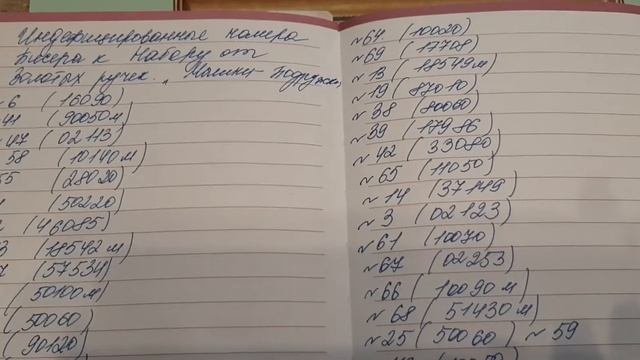 Индефицированные номера
бисера к Набору от
Золотых ручек „Мышки-подружки
6 (16090)
41 (90050м)
47 (02113)
58 (10140м)
55 (28020)
(50220)
(46085)
3 (18542м)
(57534)
(50100м)
(50060)
(90120)
№64 (10020)
№69 (17708)
№13 (18549м)
№19 (87010)
№38 (80060)
№39 (17986)
№42 (33080)
№65 (11050)
№14 (37149)
№3 (02123)
№61 (10070)
№67 (02253)
№66 (10090м)
№68 (51430м)
№25 (50060) №59